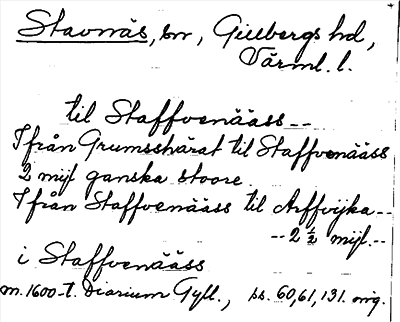 Stavnäs, sn, Gillbergs hd,
Värml. l.
til Staffvenääss--
Ifrån Grumsshärat til Staffvenääss
2 mijl ganska stoore.
Ifrån Staffvenääss til Arffvijka--
--2 1/2 mijl.--
i Staffvenääss
m. 1600-t. Diarium Gyll., ss. 60,61,131. orig.